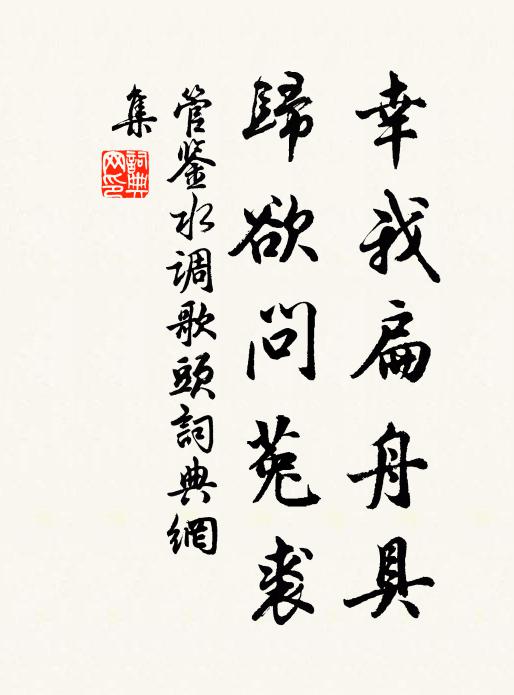 幸我扁舟具
歸欲問菟裘
管鉴水调歌頭詞典網
集
詞典
网印